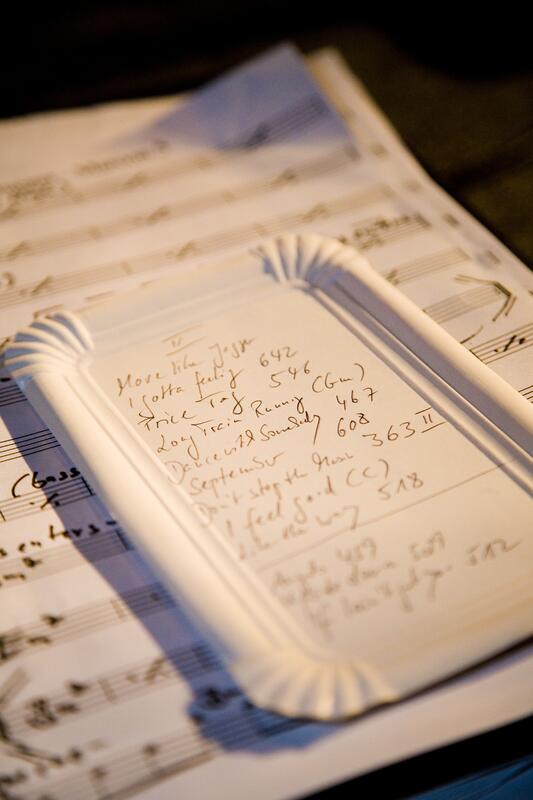 II
Move like Jagger
I gotta feeling 642
Price Tag 546
Long Train Runny (Gm)
Dance with Somebody 467
September 608
Don't stop the Music 363 II
I feel good (C)
the way 518
Angels 439
down 509
If I ain't got you 512
(bass